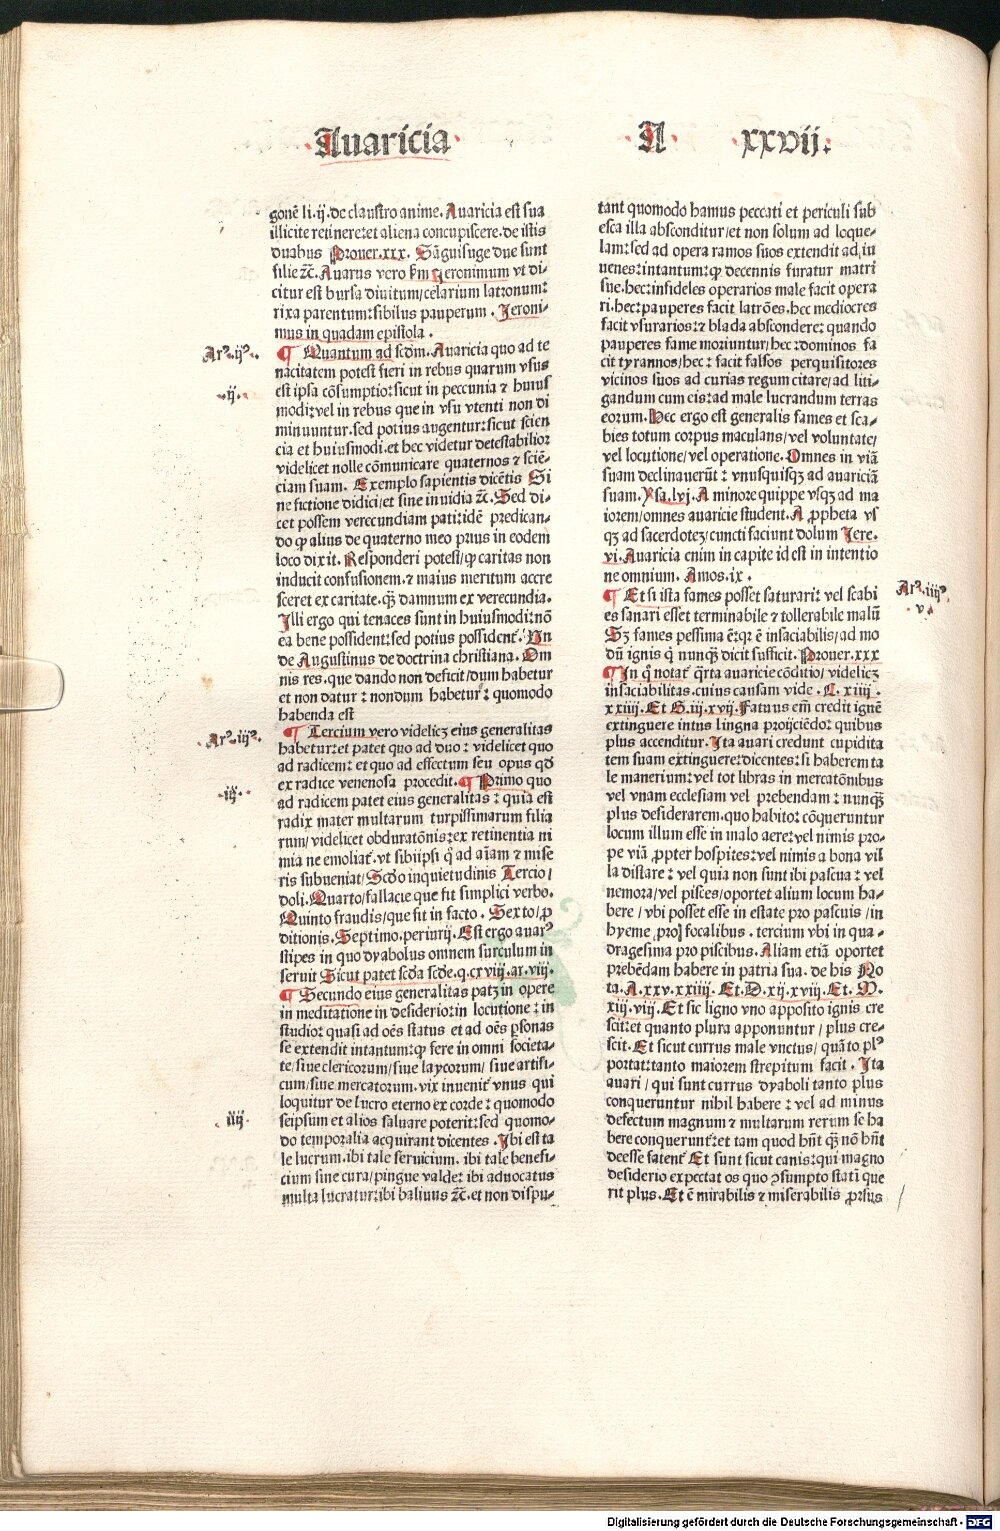 Auaricia
A xxvij.
gonē li.ij.de claustro anime. Auaricia est sua
illicite retinere:et aliena concupiscere.de istis
duabus Prouer.xxx. Sāguisuge due sunt
filie ⁊c̄. Auarus vero km̄ Jeronimum vt di-
citur est bursa diuitum/celarium latronum:
rixa parentum:sibilus pauperum. Jeroni-
mus in quadam epistola.
Arᵒ.ijᵒ.
¶ Quantum ad scd̄m. Auaricia quo ad te
nacitatem potest fieri in rebus quarum vsus
.ij.
est ipsa cōsumptio:sicut in peccunia ⁊ huius
modi:vel in rebus que in vsu vtenti non di
minuuntur.sed potius augentur:sicut scien
cia et huiusmodi.et hec videtur detestabilior
videlicet nolle cōmunicare quaternos ⁊ sciē-
ciam suam. Exemplo sapientis dicētis Si
ne fictione didici/et sine inuidia ⁊c̄. Sed di-
cet possem verecundiam pati:idē predican-
do qꝫ alius de quaterno meo prius in eodem
loco dixit. Responderi potest/qꝫ caritas non
inducit confusionem.⁊ maius meritum accre
sceret ex caritate.qꝫ̄ damnum ex verecundia.
Illi ergo qui tenaces sunt in huiusmodi:nō
ea bene possident:sed potius possident̄. Un
de Augustinus de doctrina christiana. Om
nis res.que dando non deficit/dum habetur
et non datur: nondum habetur: quomodo
habenda est
Arᵒ.iijᵒ.
¶ Tercium vero videlicꝫ eius generalitas
habetur:et patet quo ad duo: videlicet quo
ad radicem: et quo ad effectum seu opus qd̄
ex radice venenosa procedit. ¶ Primo quo
.iij.
ad radicem patet eius generalitas: quia est
radix mater multarum turpissimarum filia
rum/videlicet obduratōnis:ex retinentia ni
mia ne emoliat̄.vt sibiipsi qͣ ad aīam ⁊ mise
ris subueniat/Scd̄o inquietudinis Tercio/
doli. Quarto/fallacie que fit simplici verbo.
Quinto fraudis/que fit in facto. Sexto/ꝓ
ditionis. Septimo.periurij. Est ergo auarᵒ
stipes in quo dyabolus omnem surculum in
seruit Sicut patet scd̄a scd̄e.q.cxviij.ar.viij.
¶ Secundo eius generalitas patꝫ in opere
in meditatione in desiderio:in locutione: in
studio: quasi ad oēs status et ad oēs ꝑsonas
se extendit intantum:qꝫ fere in omni societa-
te/siue clericorum/siue laycorum/ siue artifi-
cum/siue mercatorum.vix inuenit̄ vnus qui
loquitur de lucro eterno ex corde: quomodo
.iiij.
seipsum et alios saluare poterit:sed quomo-
do temporalia acquirant dicentes. Ibi est ta
le lucrum.ibi tale seruicium. ibi tale benefi-
cium sine cura/pingue valde: ibi aduocatus
multa lucratur:ibi baliuus ⁊c̄.et non dispu-
tant quomodo hamus peccati et periculi sub
esca illa absconditur/et non solum ad loque-
lam:sed ad opera ramos suos extendit ad iu
uenes:intantum:qꝫ decennis furatur matri
sue.hec:infideles operarios male facit opera
ri.hec:pauperes facit latrōes.hec mediocres
facit vsurarios:⁊ blada abscondere: quando
pauperes fame moriuntur/hec:dominos fa
cit tyrannos/hec: facit falsos perquisitores
vicinos suos ad curias regum citare/ad liti-
gandum cum eis:ad male lucrandum terras
eorum. Hec ergo est generalis fames et sca-
bies totum corpus maculans/vel voluntate/
vel locutione/vel operatione. Omnes in viā
suam declinauerūt: vnusquisqꝫ ad auariciā
suam. Ysa.lvj. A minore quippe vsqꝫ ad ma
iorem/omnes auaricie student. A ꝓpheta vs
qꝫ ad sacerdotez/cuncti faciunt dolum Jere.
vi. Auaricia enim in capite id est in intentio
ne omnium. Amos.ix.
Arᵒ.iiijᵒ
v.
¶ Et si ista fames posset saturari: vel scabi
es sanari esset terminabile ⁊ tollerabile malū
Sꝫ fames pessima ē:qꝛ ē insaciabilis/ad mo
dū ignis qͥ nunqꝫ̄ dicit sufficit. Prouer.xxx
¶ In qͦ notat̄ qͣrta auaricie cōditio/videlicꝫ
insaciabilitas.cuius causam vide. C. xiiij.
xxiiij. Et G.iij.xvij. Fatuus em̄ credit ignē
extinguere intus lingna proijciēdo: quibus
plus accenditur. Ita auari credunt cupidita
tem suam extinguere:dicentes: si haberem ta
le manerium: vel tot libras in mercatōnibus
vel vnam ecclesiam vel prebendam: nunqꝫ̄
plus desiderarem.quo habito: cōqueruntur
locum illum esse in malo aere:vel nimis pro-
pe viā ꝓpter hospites: vel nimis a bona vil
la distare: vel quia non sunt ibi pascua: vel
nemora/vel pisces/oportet alium locum ha-
bere / vbi posset esse in estate pro pascuis /in
hyeme pro focalibus. tercium vbi in qua-
dragesima pro piscibus. Aliam etiā oportet
prebēdam habere in patria sua. de his No
ta. A.xxv.xxiiij. Et.D.xij.xviij. Et. M.
xiij.viij. Et sic ligno vno apposito ignis cre
scit:et quanto plura apponuntur / plus cre-
scit. Et sicut currus male vnctus/ quāto plᵒ
portat:tanto maiorem strepitum facit. Ita
auari / qui sunt currus dyaboli tanto plus
conqueruntur nihil habere: vel ad minus
defectum magnum ⁊ multarum rerum se ha
bere conquerunt̄:et tam quod hn̄t qꝫ̄ nō hn̄t
deesse fatent̄ Et sunt sicut canis:qui magno
desiderio expectat os quo ꝯsumpto stati que
rit plus. Et ē mirabilis ⁊ miserabilis ꝓrsus
Digitalisierung gefördert durch die Deutsche Forschungsgemeinschaft - DFG